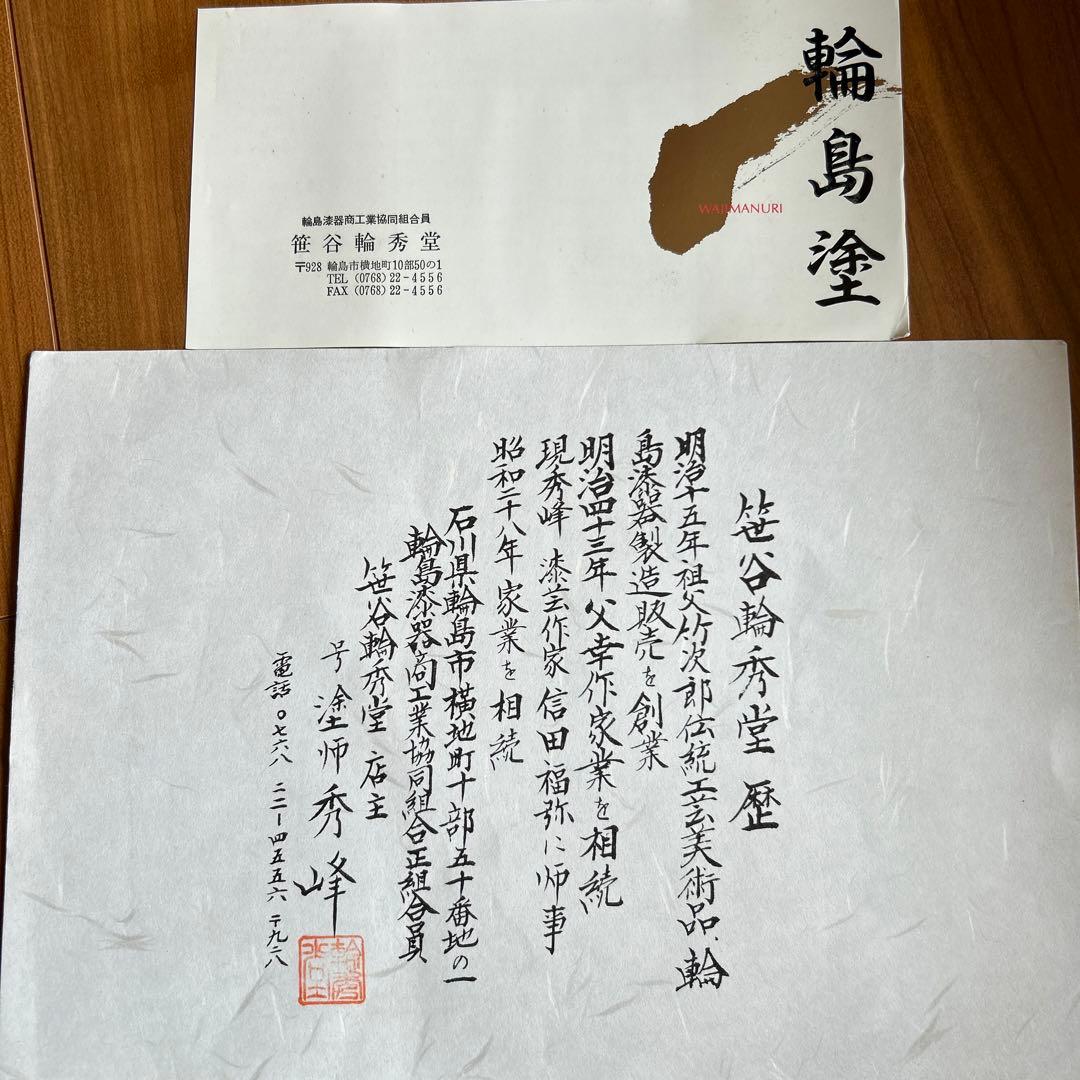 輪島塗
WAJIMANURI
輪島漆器商工業協同組合員
笹谷輪秀堂
〒928 輪島市横地町10部50の1
TEL (0768) 22-4556
FAX (0768) 22-4556
笹谷輪秀堂 歴
明治十五年祖父竹次郎伝統工芸美術品、輪
島漆器製造販売を創業
明治四十三年 父幸作家業を相続
現秀峰 漆芸作家 信田福弥に師事
昭和二十八年 家業を相続
石川県輪島市横地町十部五十番地の一
輪島漆器商工業協同組合正組合員
笹谷輪秀堂 店主
号 塗师秀峰
電話 〇七六八 二二-四五五六 〒九二八